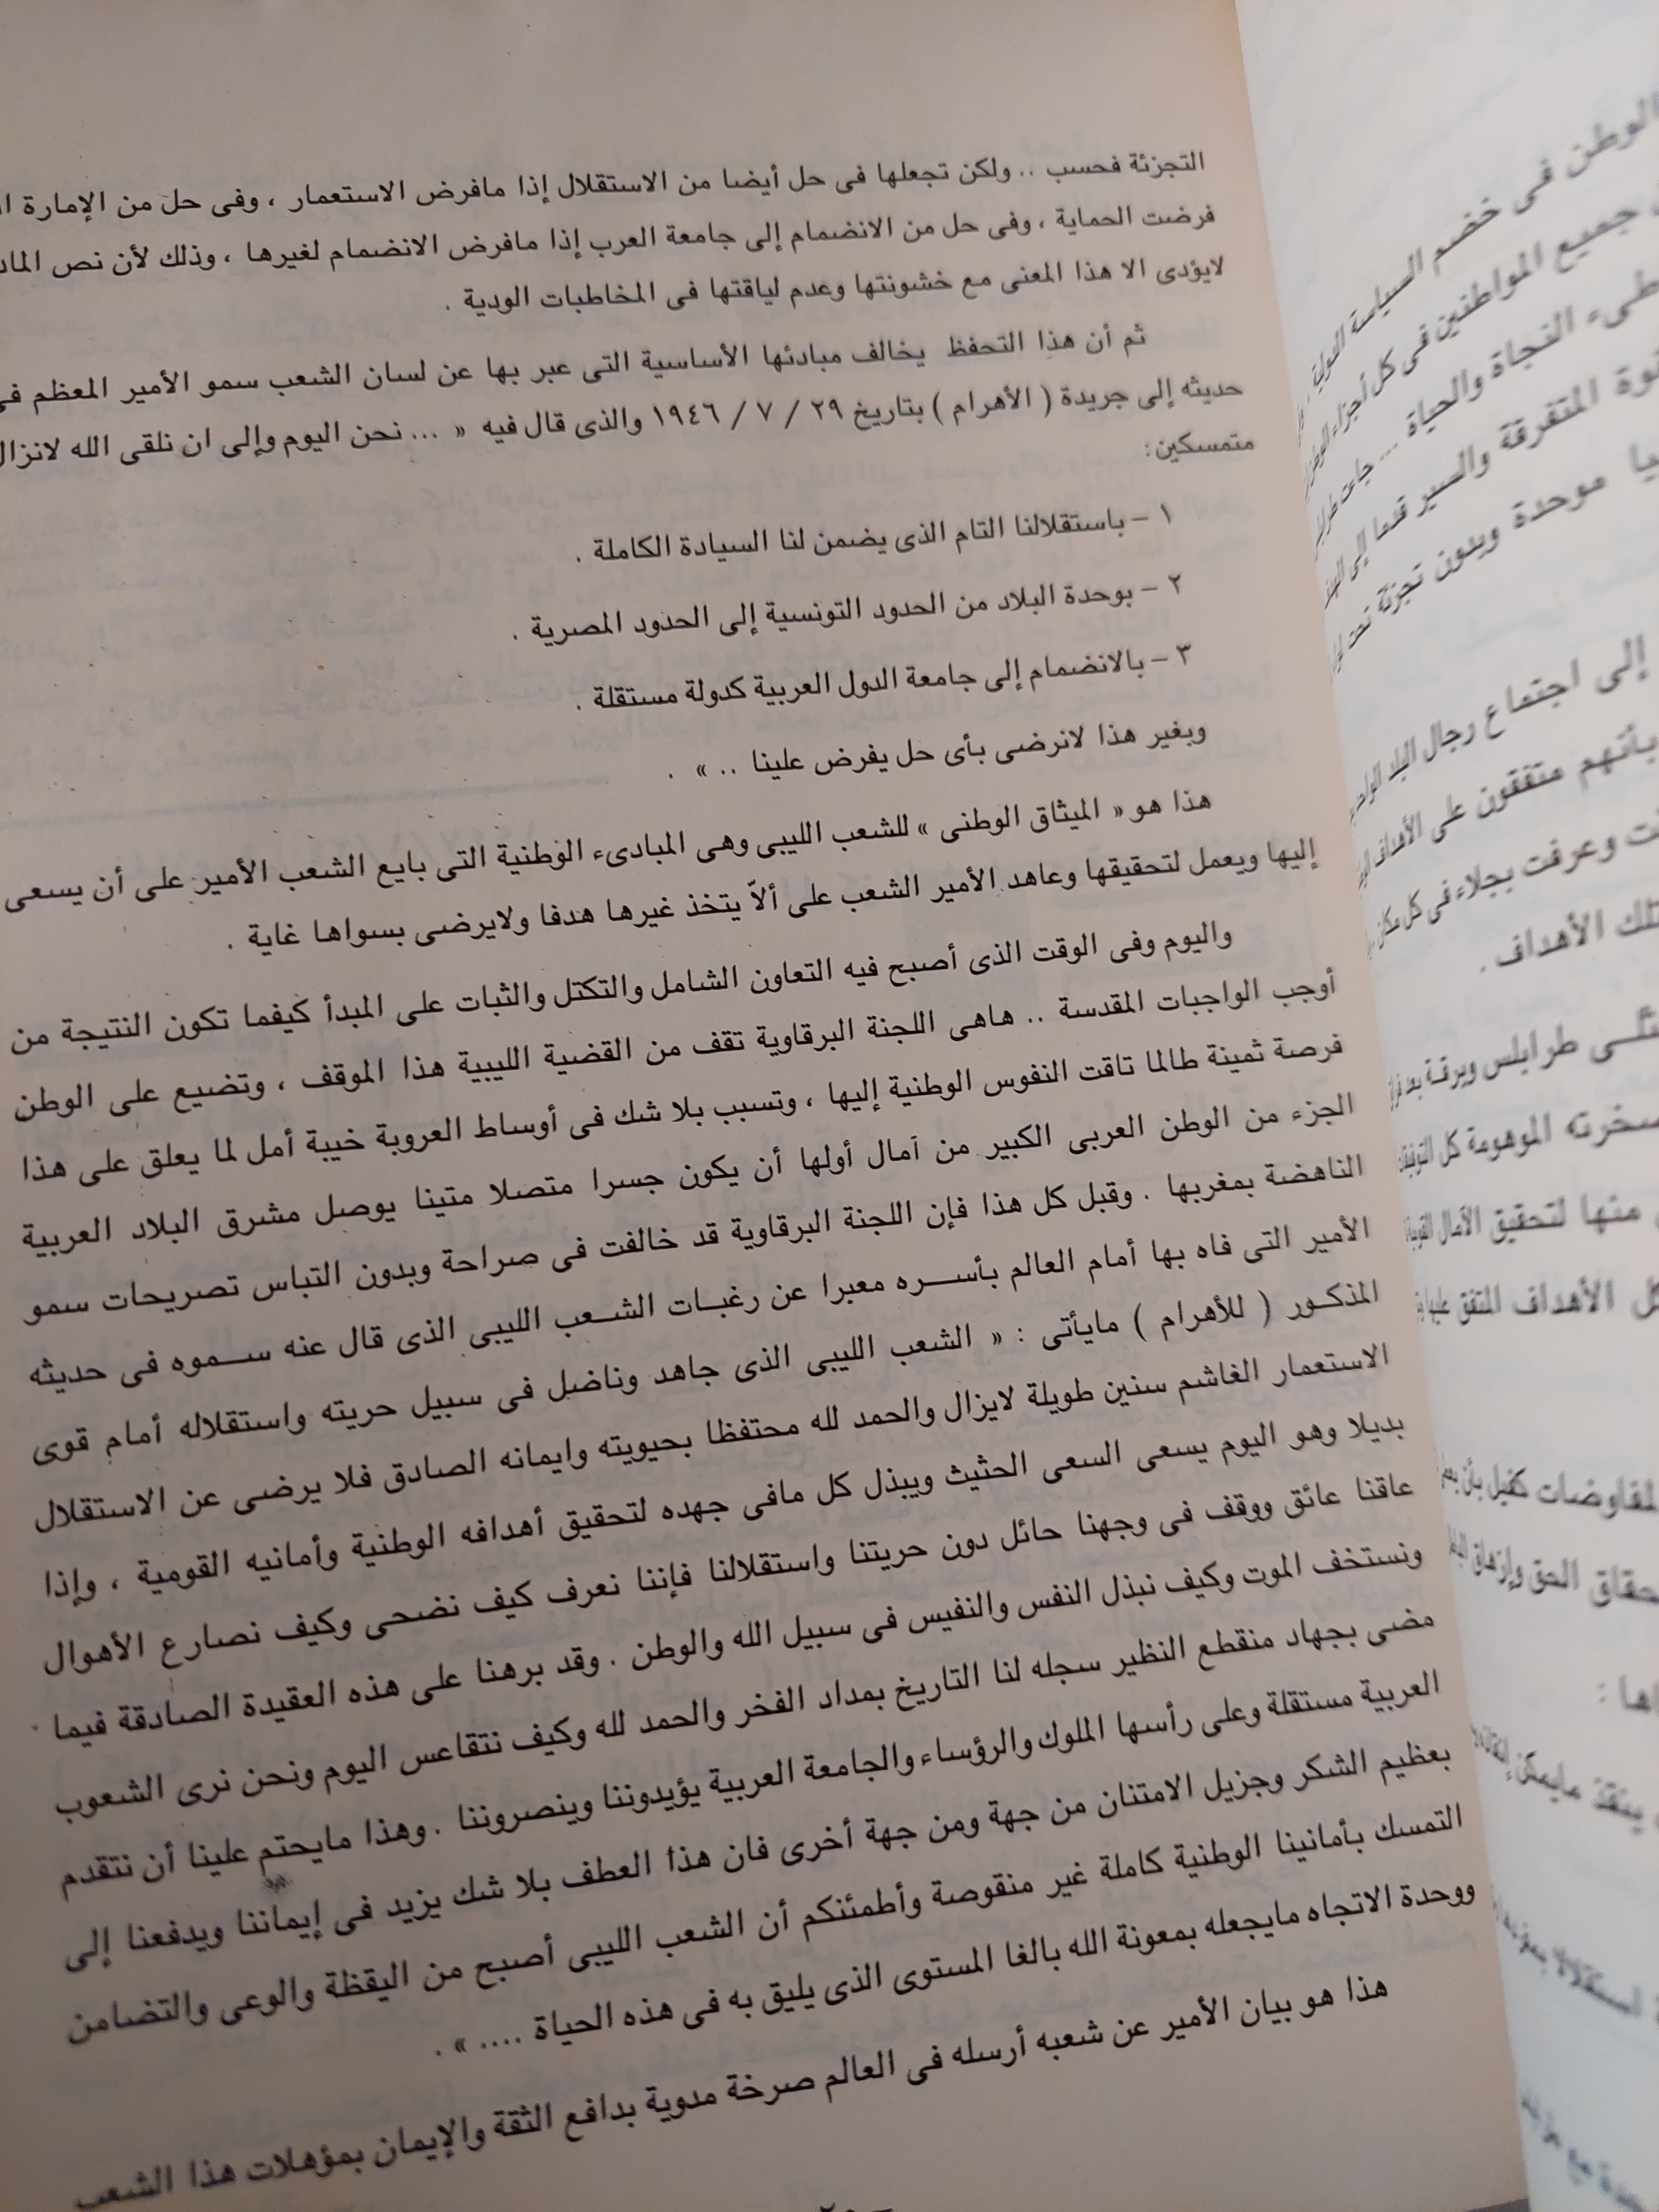 التجزئة فحسب .. ولكن تجعلها فى حل أيضا من الاستقلال إذا مافرض الاستعمار ، وفى حل من الإمارة
فرضت الحماية ، وفى حل من الانضمام إلى جامعة العرب إذا مافرض الانضمام لغيرها ، وذلك لأن نص
لايؤدى الا هذا المعنى مع خشونتها وعدم لياقتها فى المخاطبات الودية .
ثم أن هذا التحفظ يخالف مبادئها الأساسية التى عبر بها عن لسان الشعب سمو الأمير المعظم فى
حديثه إلى جريدة ( الأهرام ) بتاريخ ٢٩ / ٧ / ١٩٤٦ والذى قال فيه « ... نحن اليوم وإلى ان نلقى الله لانزال
متمسكين :
١ – باستقلالنا التام الذى يضمن لنا السيادة الكاملة .
٢ – بوحدة البلاد من الحدود التونسية إلى الحدود المصرية .
٣ – بالانضمام إلى جامعة الدول العربية كدولة مستقلة .
وبغير هذا لانرضى بأى حل يفرض علينا .. » .
هذا هو « الميثاق الوطنى » للشعب الليبى وهى المبادىء الوطنية التى بايع الشعب الأمير على أن يسعى
إليها ويعمل لتحقيقها وعاهد الأمير الشعب على ألاّ يتخذ غيرها هدفا ولايرضى بسواها غاية .
واليوم وفى الوقت الذى أصبح فيه التعاون الشامل والتكتل والثبات على المبدأ كيفما تكون النتيجة من
أوجب الواجبات المقدسة .. هاهى اللجنة البرقاوية تقف من القضية الليبية هذا الموقف ، وتضيع على الوطن
فرصة ثمينة طالما تاقت النفوس الوطنية إليها ، وتسبب بلا شك فى أوساط العروبة خيبة أمل لما يعلق على هذا
الجزء من الوطن العربى الكبير من آمال أولها أن يكون جسرا متصلا متينا يوصل مشرق البلاد العربية
الناهضة بمغربها . وقبل كل هذا فإن اللجنة البرقاوية قد خالفت فى صراحة وبدون التباس تصريحات سمو
الأمير التى فاه بها أمام العالم بأسره معبرا عن رغبات الشعب الليبى الذى قال عنه سموه فى حديثه
المذكور ( للأهرام ) مايأتى : « الشعب الليبى الذى جاهد وناضل فى سبيل حريته واستقلاله أمام قوى
الاستعمار الغاشم سنين طويلة لايزال والحمد لله محتفظا بحيويته وايمانه الصادق فلا يرضى عن الاستقلال
بديلا وهو اليوم يسعى السعى الحثيث ويبذل كل مافى جهده لتحقيق أهدافه الوطنية وأمانيه القومية ، وإذا
عاقنا عائق ووقف فى وجهنا حائل دون حريتنا واستقلالنا فإننا نعرف كيف نضحى وكيف نصارع الأهوال
ونستخف الموت وكيف نبذل النفس والنفيس فى سبيل الله والوطن . وقد برهنا على هذه العقيدة الصادقة فيما
مضى بجهاد منقطع النظير سجله لنا التاريخ بمداد الفخر والحمد لله وكيف نتقاعس اليوم ونحن نرى الشعوب
العربية مستقلة وعلى رأسها الملوك والرؤساء والجامعة العربية يؤيدوننا وينصروننا . وهذا مايحتم علينا أن نتقدم
بعظيم الشكر وجزيل الامتنان من جهة ومن جهة أخرى فان هذا العطف بلا شك يزيد فى إيماننا ويدفعنا إلى
التمسك بأمانينا الوطنية كاملة غير منقوصة وأطمئنكم أن الشعب الليبى أصبح من اليقظة والوعى والتضامن
ووحدة الاتجاه مايجعله بمعونة الله بالغا المستوى الذى يليق به فى هذه الحياة .... » .
هذا هو بيان الأمير عن شعبه أرسله فى العالم صرخة مدوية بدافع الثقة والإيمان بمؤهلات هذا الشعب
الوطن فى خضم السياسة الدولية
جميع المواطنين فى كل أجزاء
النجاة والحياة ...
المتفرقة والسير قدما إلى
موحدة وبدون تجزئة تحت
إلى اجتماع رجال البلاد
بأنهم متفقون على الأهداف
وعرفت بجلاء فى كل مكان
تلك الأهداف .
طرابلس وبرقة بعد
الموهومة كل
منها لتحقيق الآمال
الأهداف المتفق عليها
كفيل بأن
الحق وإزهاق
ينقذ مايمكن